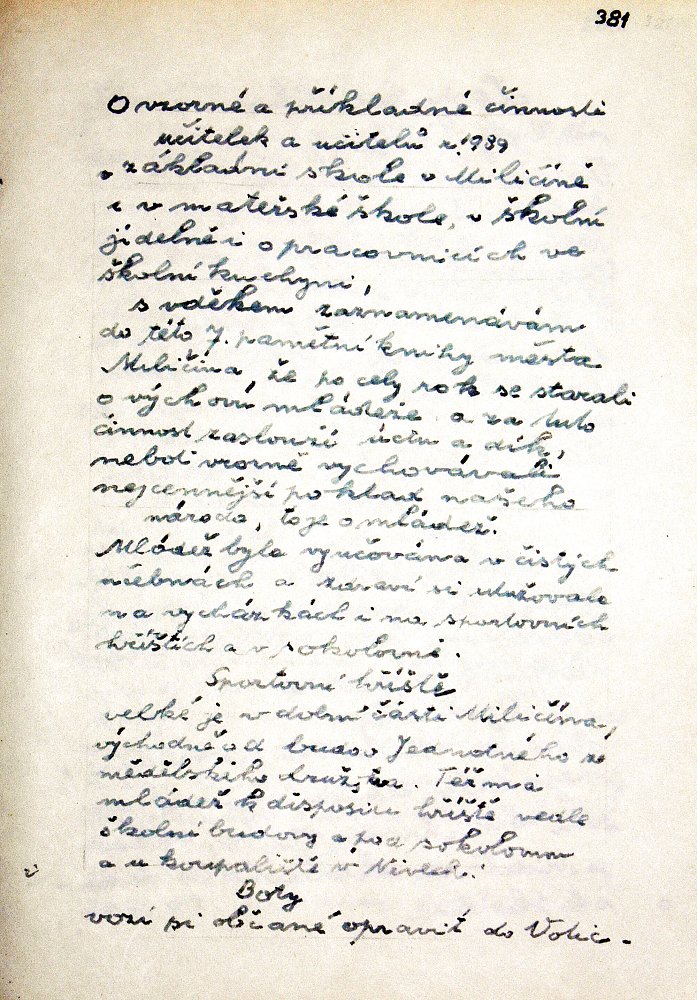 381
O vzorné a příkladné činnosti
učitelek a učitelů r. 1989
v základní škole v Miličíně
i v mateřské škole, v školní
jídelně i o pracovnicích ve
školní kuchyni,
s vděkem zaznamenávám
do této 7. pamětní knihy města
Miličína, že po celý rok se starali
o výchovu mládeže a za tuto
činnost zaslouží úctu a dík,
neboť vzorně vychovávali
nejcennější poklad našeho
národa, to je o mládež.
Mládež byla vyučována v čistých
učebnách a zdraví si utužovala
na vycházkách i na sportovních
hřištích a v sokolovně.
Sportovní hřiště
velké je v dolní části Miličína,
východně od budov Jednotného ze
mědělského družstva. Též má
mládež k disposici hřiště vedle
školní budovy a pod sokolovnou
a u koupaliště v Nivech.
Boty
vozí si občané opravit do Votic.